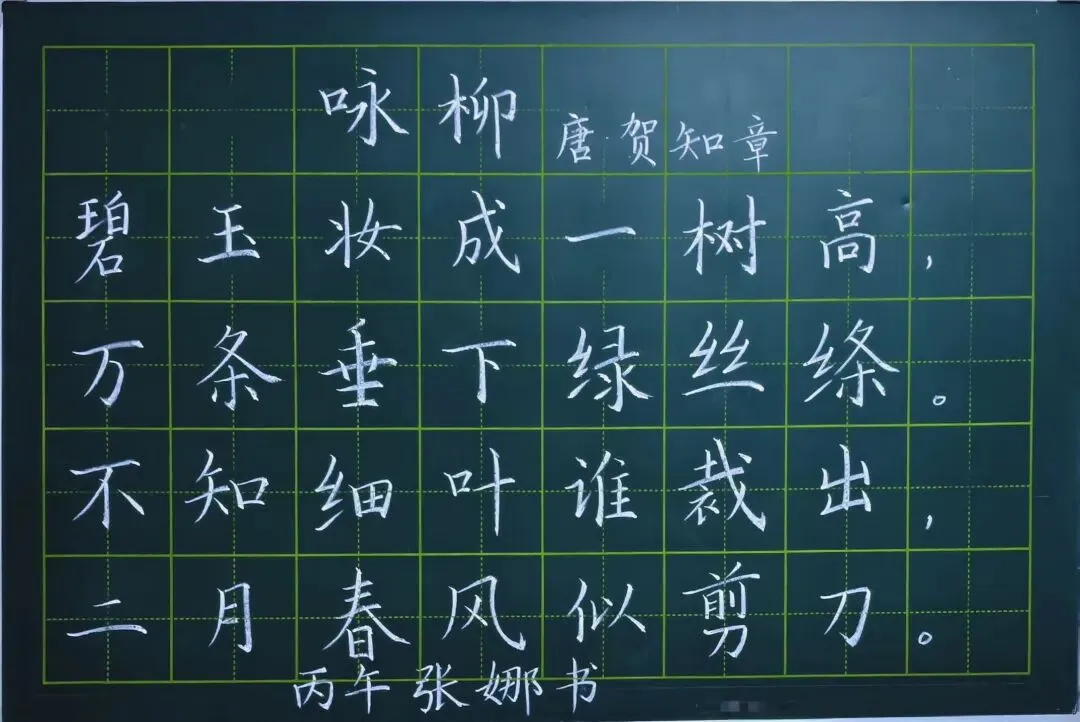 咏柳 唐·贺知章
碧玉妆成一树高，
万条垂下绿丝绦。
不知细叶谁裁出，
二月春风似剪刀。
丙午 张娜书